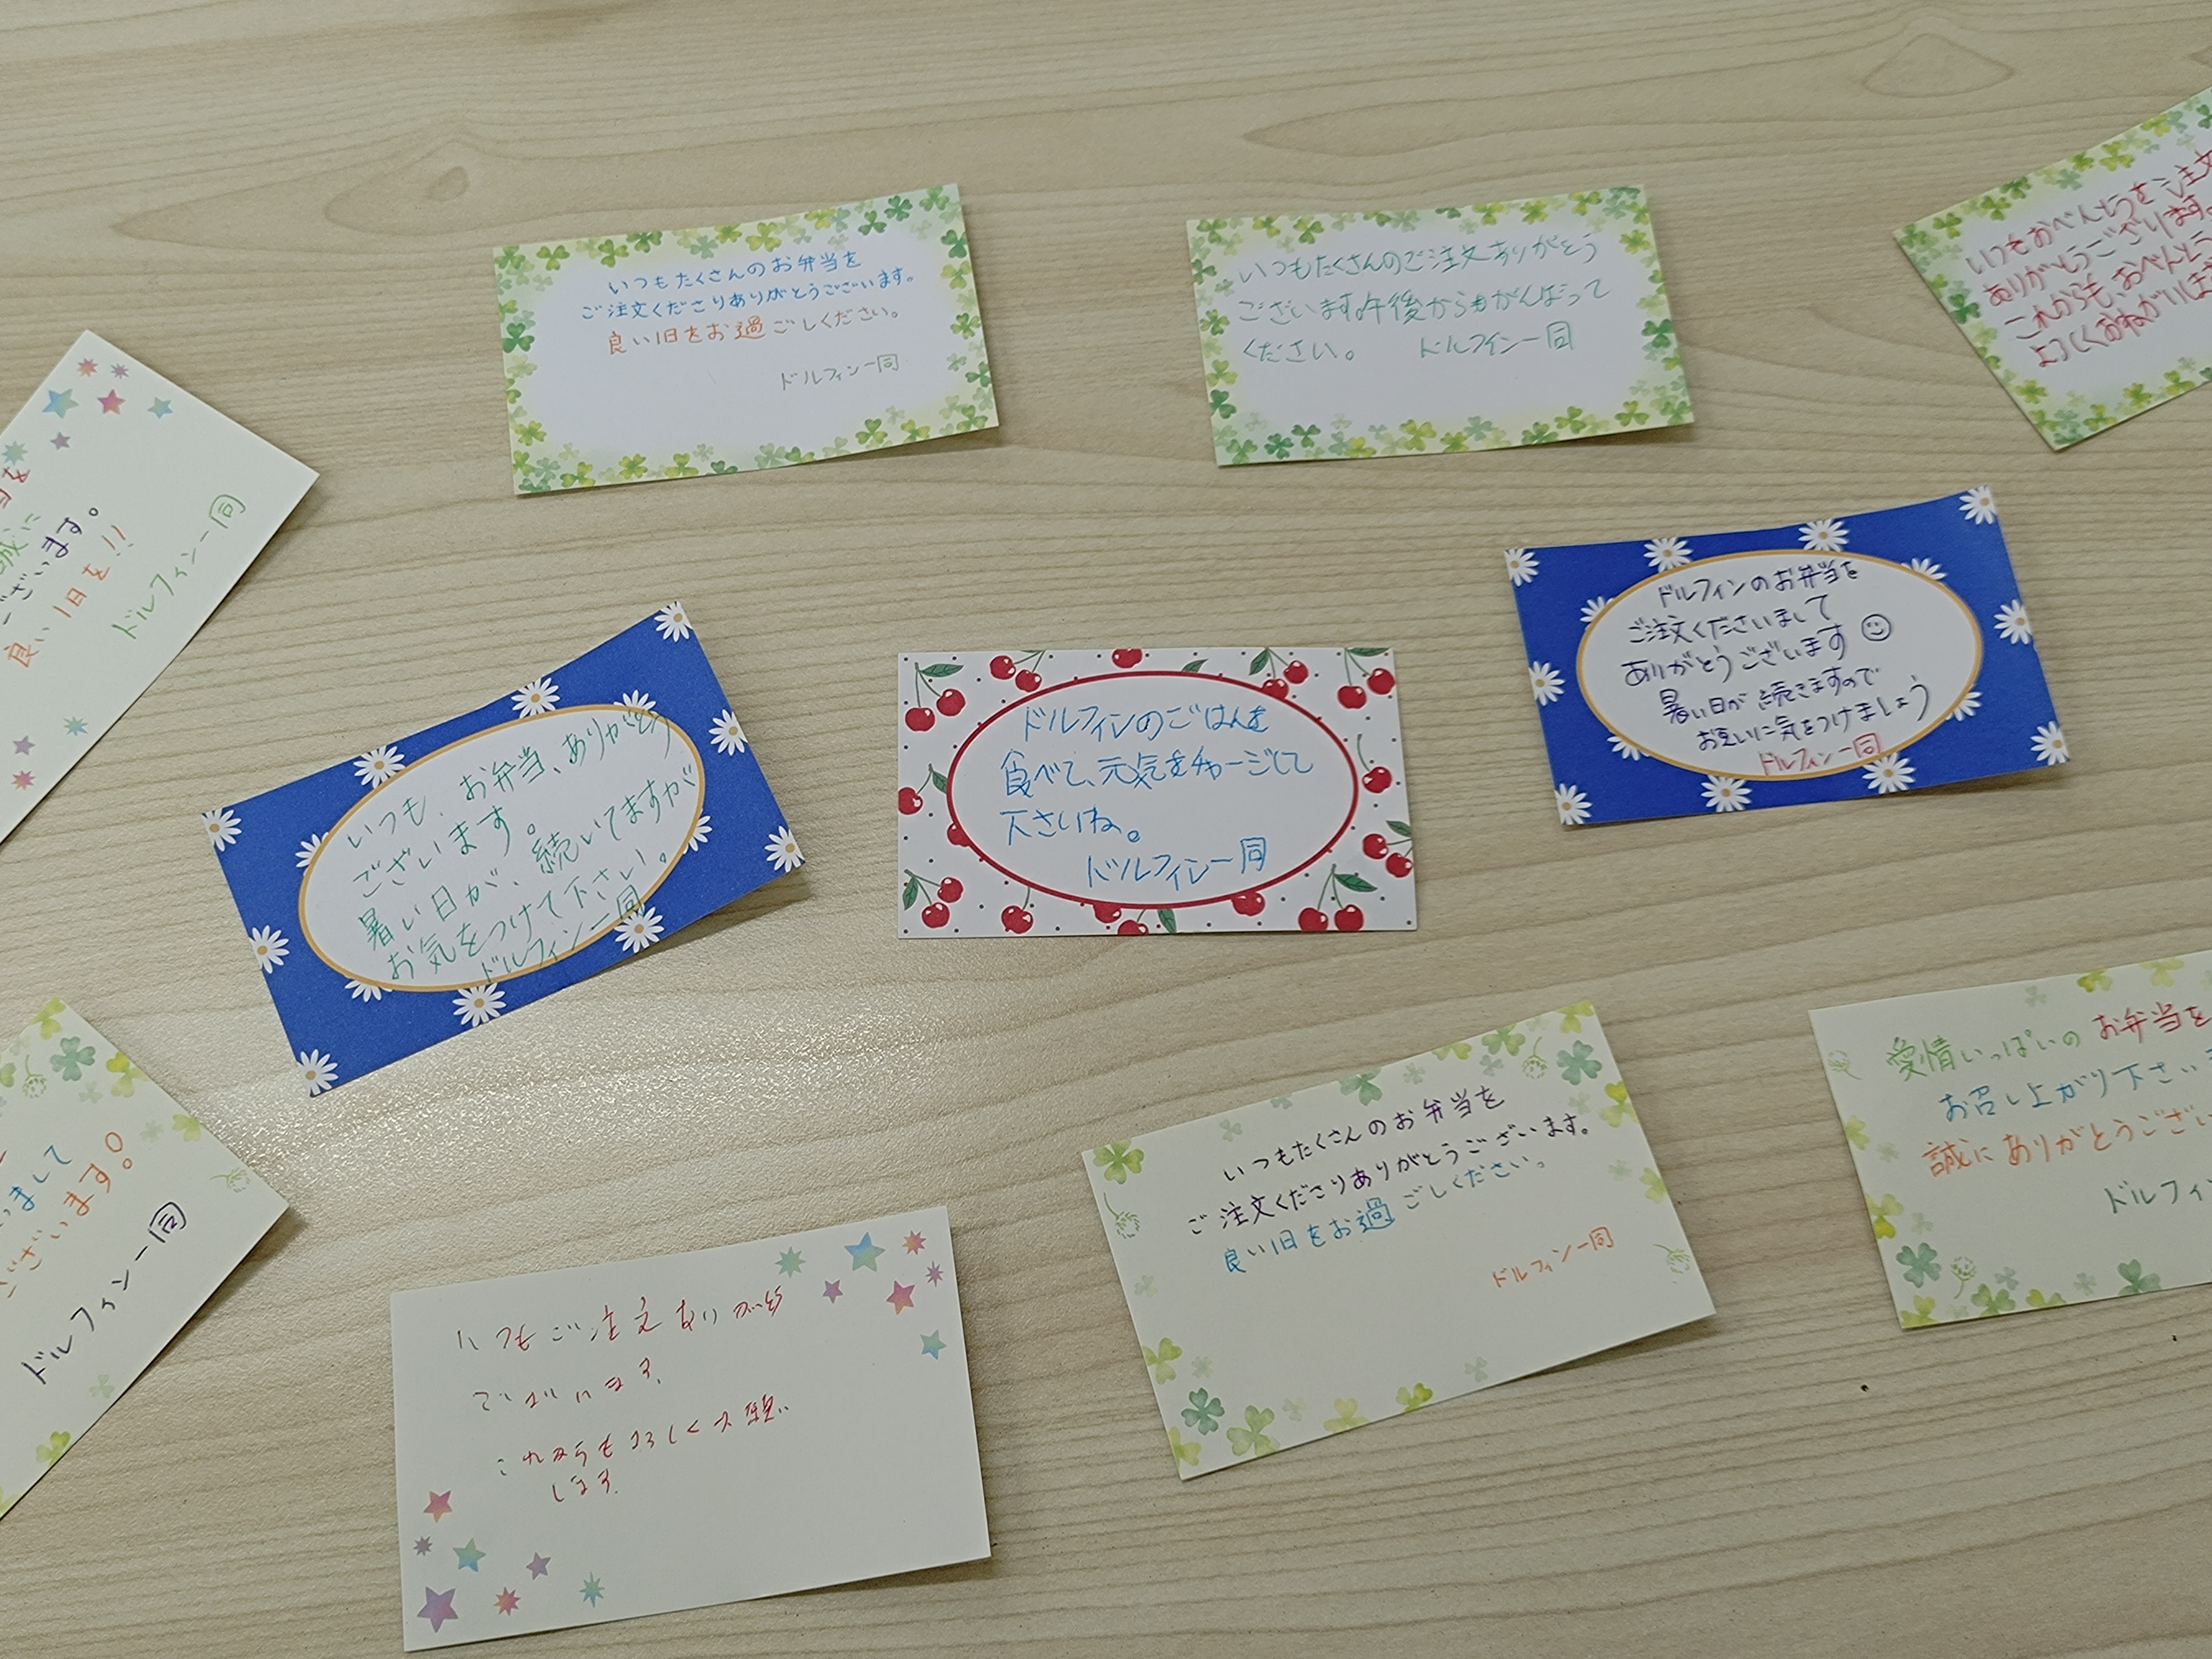 いつもたくさんのお弁当を
ご注文くださりありがとうございます。
良い1日をお過ごしください。
ドルフィン一同
いつもたくさんのご注文ありがとう
ございます。午後からもがんばって
ください。 ドルフィン一同
いつもおべんとうをご注文
ありがとうございます。
これからも、おべんとう
よろしくおねがいしま
を
誠に
ございます。
良い1日を!!
ドルフィン一同
いつも、お弁当、ありがとう
ございます。
暑い日が、続いてますが
お気をつけて下さい。
ドルフィン一同
ドルフィンのごはんを
食べて、元気をチャージして
下さいね。
ドルフィン一同
ドルフィンのお弁当を
ご注文くださいまして
ありがとうございます
暑い日が続きますので
お互いに気をつけましょう
ドルフィン一同
まして
ございます!
ドルフィン一同
いつもご注文ありがとう
ございます。
これからもよろしくお願い
します。
いつもたくさんのお弁当を
ご注文くださりありがとうございます。
良い1日をお過ごしください。
ドルフィン一同
愛情いっぱいのお弁当を
お召し上がり下さい
誠にありがとうござい
ドルフィ